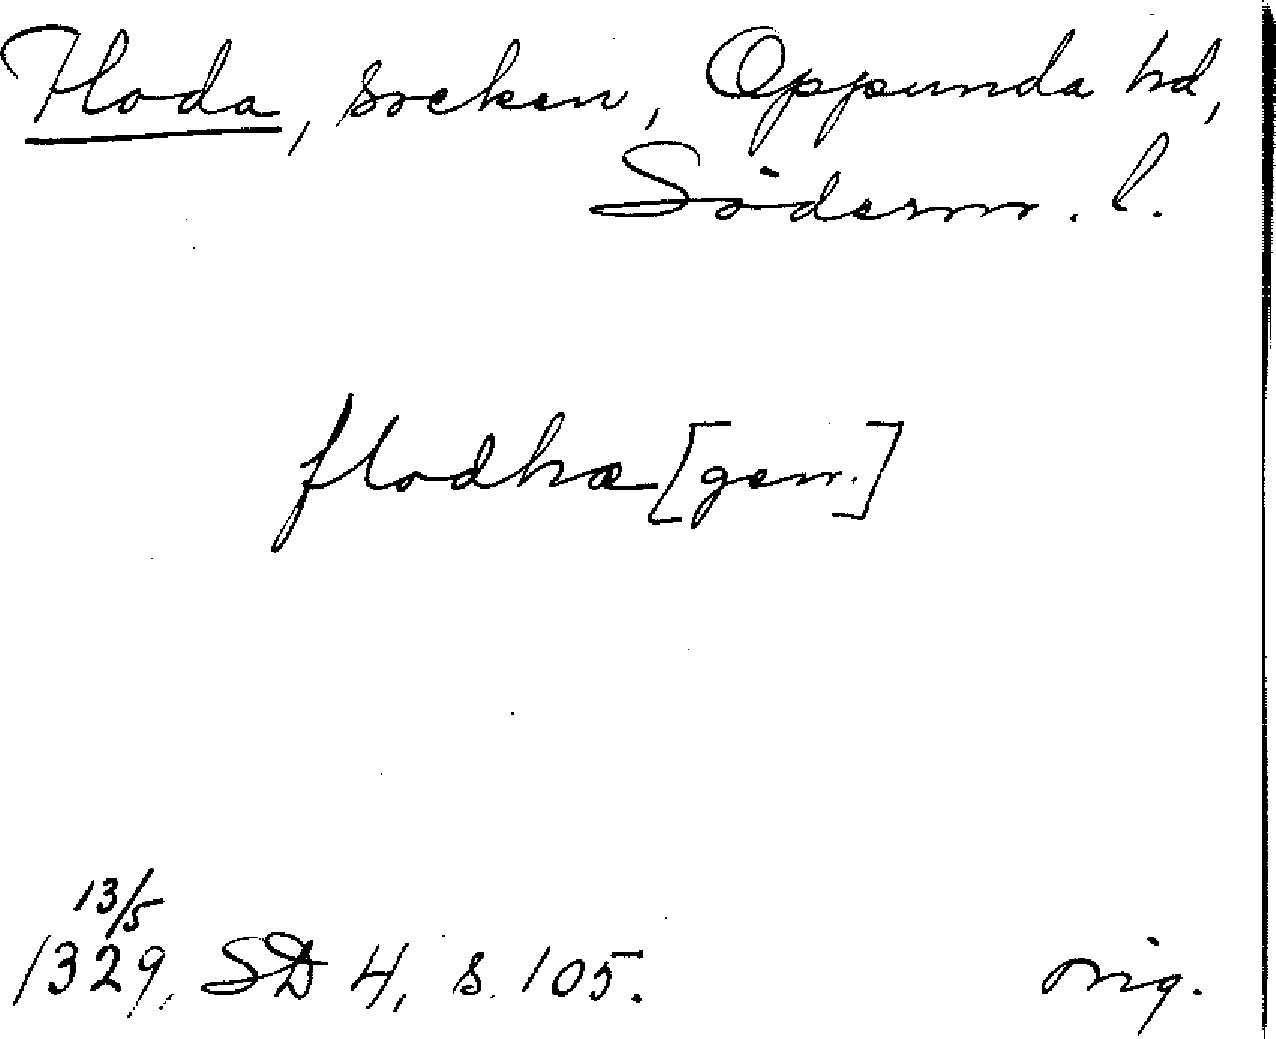 Floda, socken, Oppunda hd,
Söderm. l.
flodhæ [gen.]
13/5
1329, SD 4, s. 105.
orig.